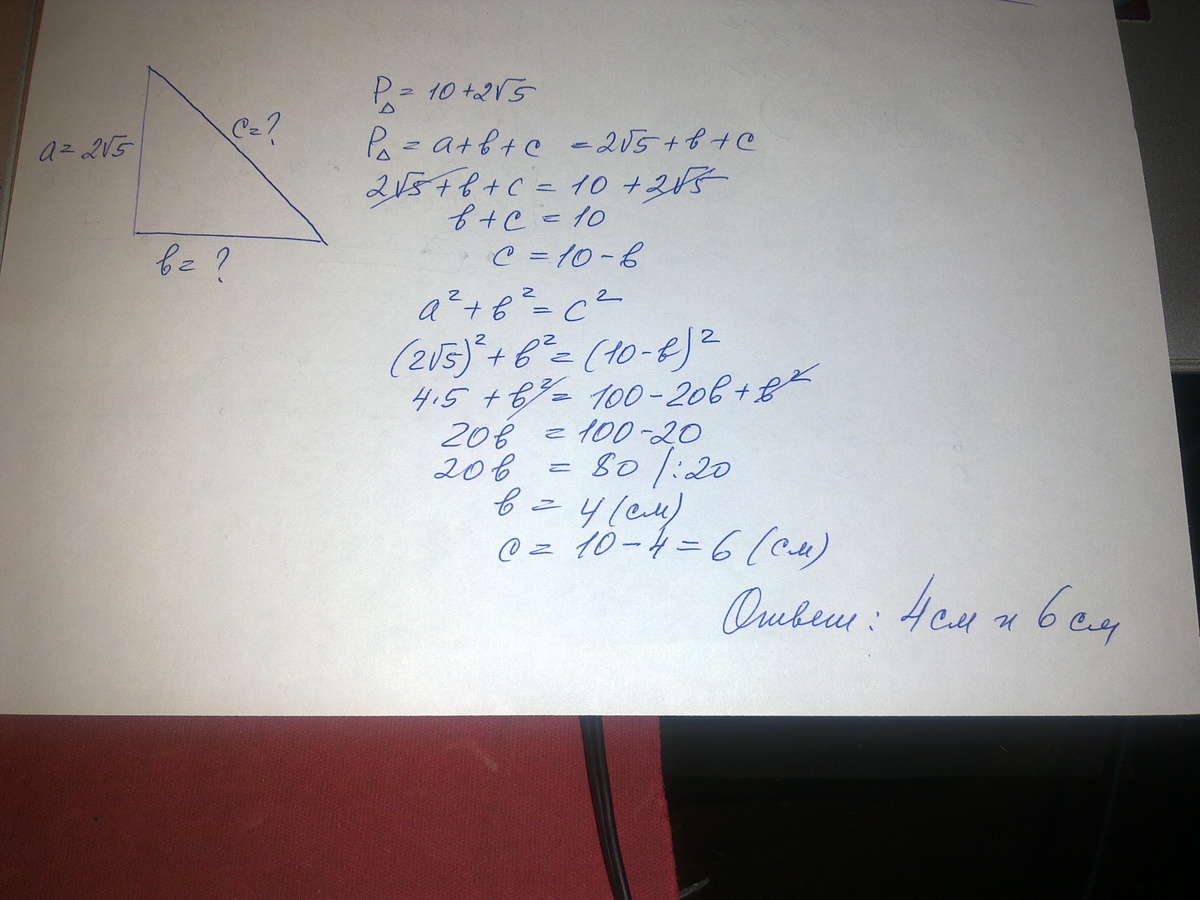 a = 2√5
c = ?
b = ?
P△ = 10+2√5
P△ = a+b+c = 2√5+b+c
2√5+b+c = 10+2√5
b+c = 10
c = 10-b
a²+b² = c²
(2√5)²+b² = (10-b)²
4·5+b² = 100-20b+b²
20b = 100-20
20b = 80 /:20
b = 4 (см)
c = 10-4 = 6 (см)
Ответ: 4см и 6см